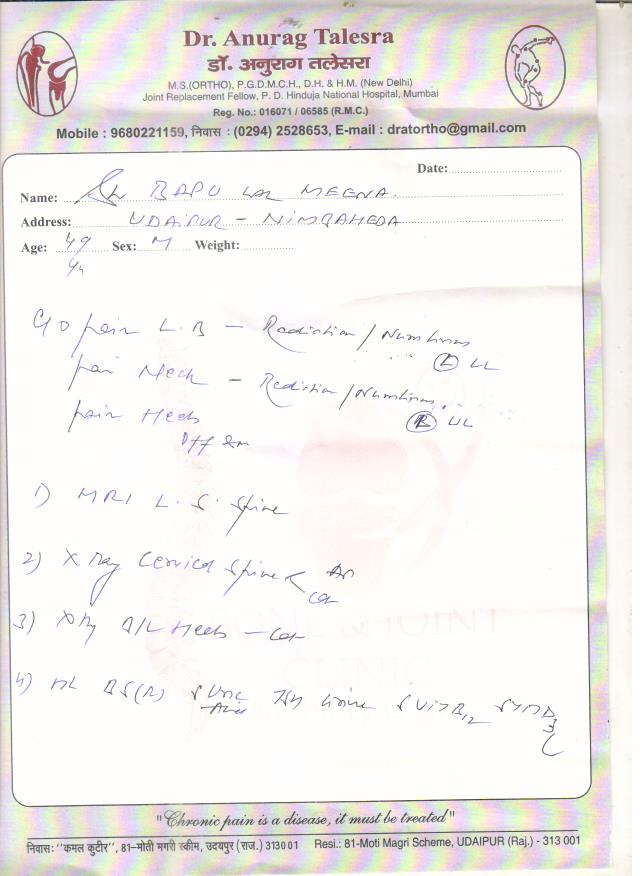 Dr. Anurag Talesra
डॉ. अनुराग तलेसरा
M.S.(ORTHO), P.G.D.M.C.H., D.H. & H.M. (New Delhi)
Joint Replacement Fellow, P. D. Hinduja National Hospital, Mumbai
Reg. No.: 016071 / 06585 (R.M.C.)
Mobile : 9680221159, निवास : (0294) 2528653, E-mail : dratortho@gmail.com
Date:
Name: BAPU LAL MEENA.
Address: UDAIPUR - NIMBAHEDA
Age: 49 Sex: M Weight:
C/O pain L.B - Radiation / Numbness
(L) LL
pain Neck - Radiation / Numbness
(R) UL
pain Heels
1) MRI L.S. Spine
2) X Ray Cervical Spine < AP
Lat
3) X Ry B/L Heels - Lat
4) BS(R) S Uric Acid Urine S Vit B12 S Vit D3
BONE & JOINT
CLINIC
"Chronic pain is a disease, it must be treated"
निवास: "कमल कुटीर", 81-मोती मगरी स्कीम, उदयपुर (राज.) 313001 Resi.: 81-Moti Magri Scheme, UDAIPUR (Raj.) - 313 001